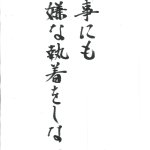 事にも
嫌な執着をしな